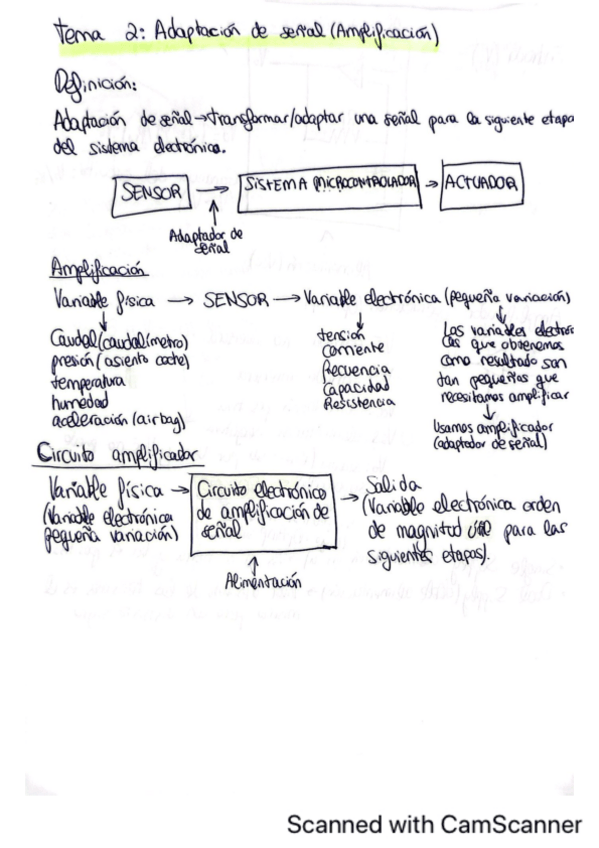 Tema 2: Adaptación de señal (Amplificación)
Definición:
Adaptación de señal → transformar/adaptar una señal para la siguiente etapa
del sistema electrónico.
SENSOR → SISTEMA MICROCONTROLADOR → ACTUADOR
Adaptador de
señal
Amplificación
Variable física → SENSOR → Variable electrónica (pequeña variación)
Caudal (caudalímetro)
presión (asiento coche)
temperatura
humedad
aceleración (airbag)
tensión
Corriente
Frecuencia
Capacidad
Resistencia
Las variables electróni
cas que obtenemos
como resultado son
tan pequeñas que
necesitamos amplificar
Usamos amplificador
(adaptador de señal)
Circuito amplificador
Variable física →
(Variable electrónica
pequeña variación)
Circuito electrónico
de amplificación de
señal
Alimentación
→ Salida
(Variable electrónica orden
de magnitud útil para las
siguientes etapas).
Scanned with CamScanner